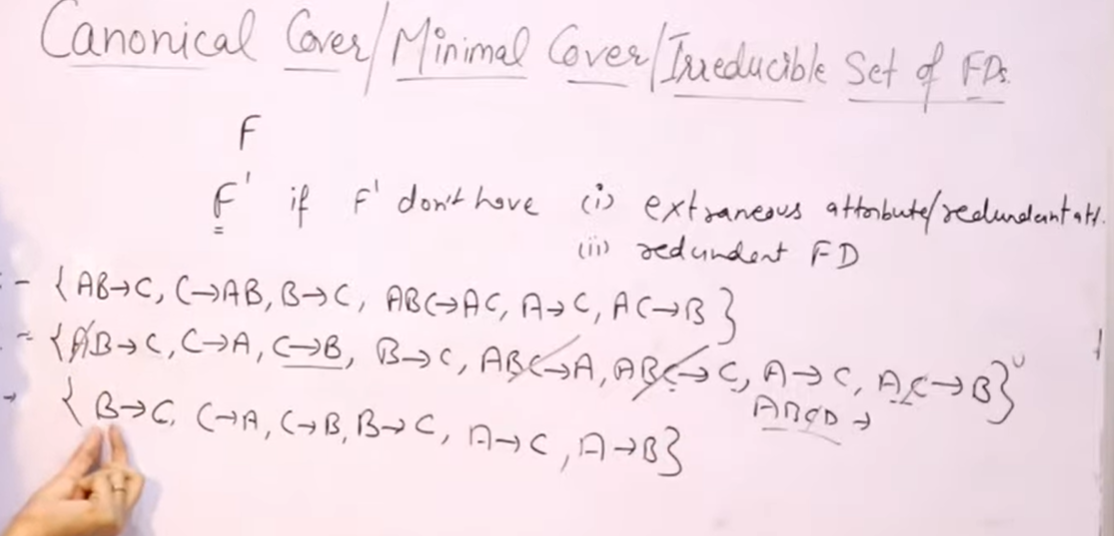 Canonical Cover/Minimal Cover/Irreducible Set of FDs.
F
F' if F' don't have (i) extraneous attribute/redundant att.
(ii) redundent FD
- { AB→C, C→AB, B→C, ABC→AC, A→C, AC→B }
{ AB→C, C→A, C→B, B→C, ABC→A, ABC→C, A→C, AC→B }
ABCD →
{ B→C, C→A, C→B, B→C, A→C, A→B }